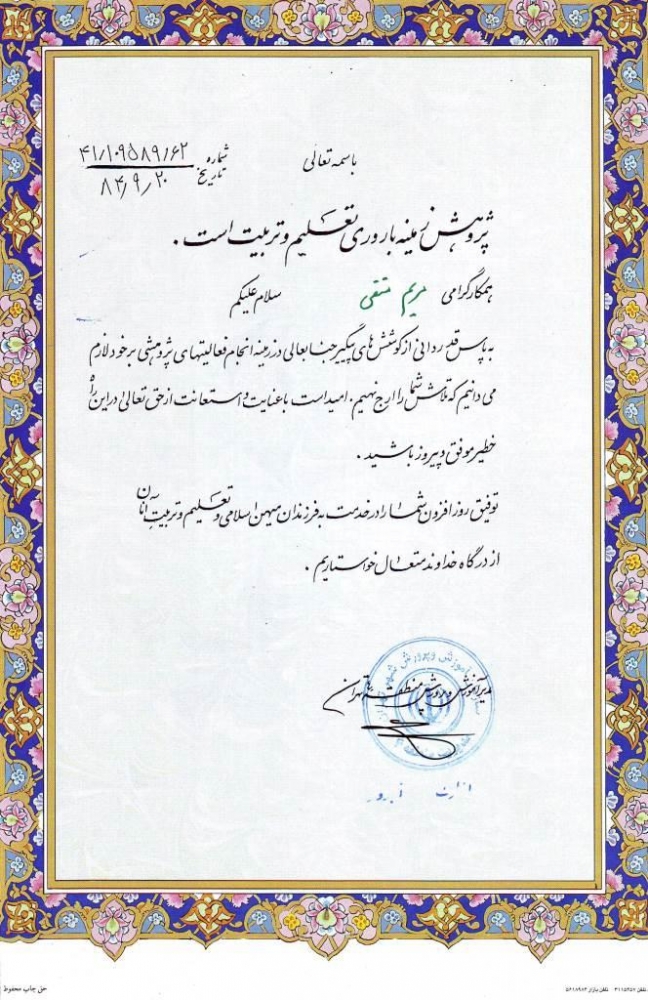 باسمه تعالی
شماره ۴۱/۱۰۹۵۸۹/۶۲
تاریخ ۸۴/۹/۲۰
پژوهش زمینه باروری تعلیم و تربیت است .
همکار گرامی مریم متقی سلام علیکم
به پاس قدردانی از کوشش های پیگیر جنابعالی در زمینه انجام فعالیتهای پژوهشی بر خود لازم
می دانیم که تلاش شما را ارج نهیم . امید است با عنایت و استعانت از حق تعالی در این راه
خطیر موفق و پیروز باشید .
توفیق روز افزون شما را در خدمت به فرزندان میهن اسلامی و تعلیم و تربیت آنان
از درگاه خداوند متعال خواستاریم .
مدیر آموزش و پرورش منطقه تهران
حق چاپ محفوظ